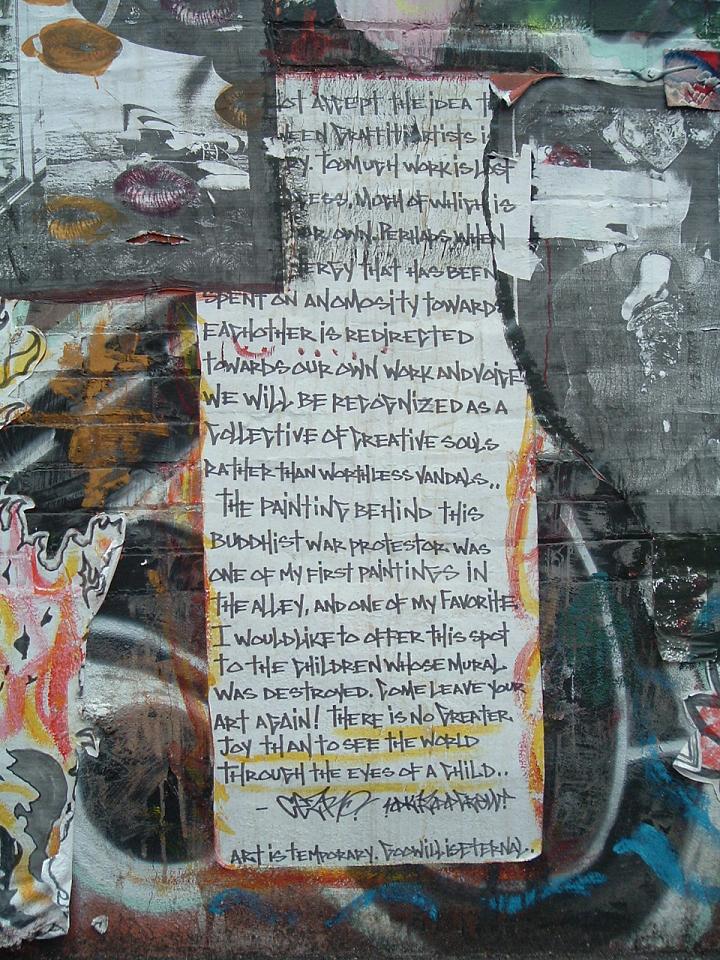 ACCEPT THE IDEA
GRAFFITI ARTISTS
TOO MUCH WORK IS LOST
MUCH OF WHICH IS
OWN. PERHAPS WHEN
THAT HAS BEEN
SPENT ON ANOMOSITY TOWARDS
EACHOTHER IS REDIRECTED
TOWARDS OUR OWN WORK AND VOICE
WE WILL BE RECOGNIZED AS A
COLLECTIVE OF CREATIVE SOULS
RATHER THAN WORTHLESS VANDALS..
THE PAINTING BEHIND THIS
BUDDHIST WAR PROTESTOR WAS
ONE OF MY FIRST PAINTINGS IN
THE ALLEY, AND ONE OF MY FAVORITE
I WOULD LIKE TO OFFER THIS SPOT
TO THE CHILDREN WHOSE MURAL
WAS DESTROYED. COME LEAVE YOUR
ART AGAIN! THERE IS NO GREATER
JOY THAN TO SEE THE WORLD
THROUGH THE EYES OF A CHILD..
ART IS TEMPORARY. GOOD WILL IS ETERNAL.